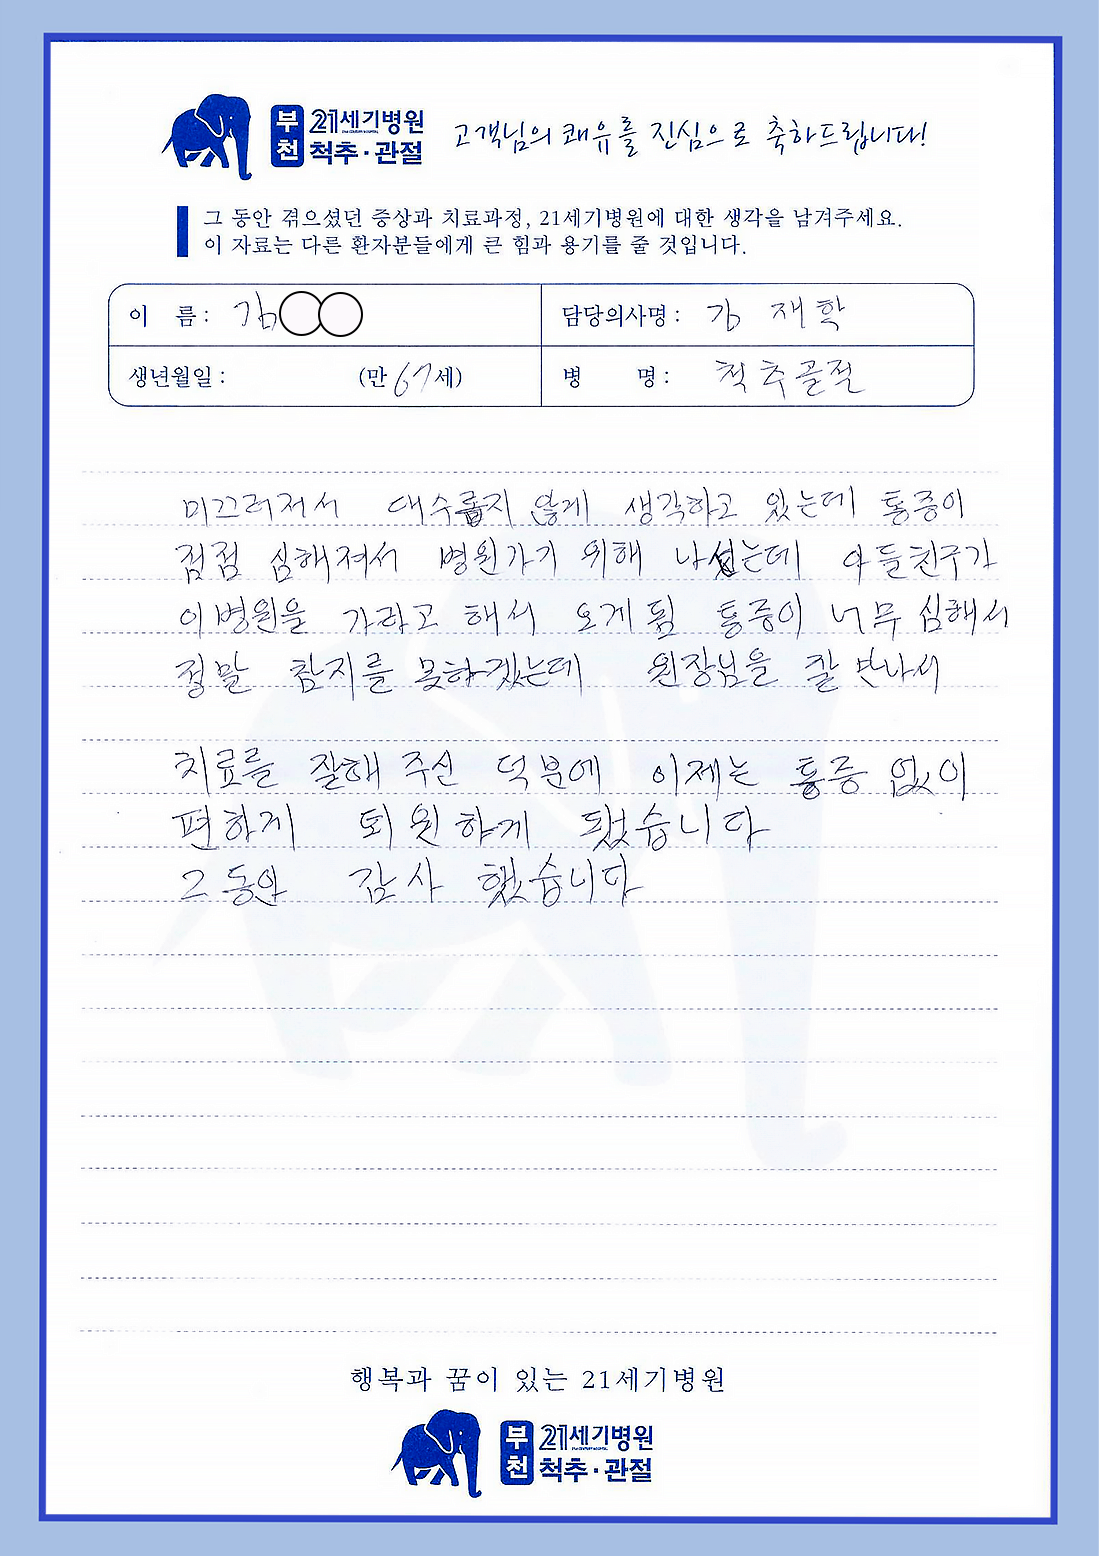 부천 21세기병원 척추·관절 고객님의 쾌유를 진심으로 축하드립니다!
그 동안 겪으셨던 증상과 치료과정, 21세기병원에 대한 생각을 남겨주세요.
이 자료는 다른 환자분들에게 큰 힘과 용기를 줄 것입니다.
이 름 : 김 담당의사명 : 김 재학
생년월일 : (만 67세) 병 명 : 척추골절
미끄러져서 대수롭지 않게 생각하고 있는데 통증이
점점 심해져서 병원가기 위해 나섰는데 아들친구가
이병원을 가라고 해서 오게됨 통증이 너무 심해서
정말 참지를 못하겠는데 원장님을 잘 만나서
치료를 잘해 주신 덕분에 이제는 통증 없이
편하게 퇴원하게 됐습니다
그동안 감사 했습니다
행복과 꿈이 있는 21세기병원
부천 21세기병원 척추·관절